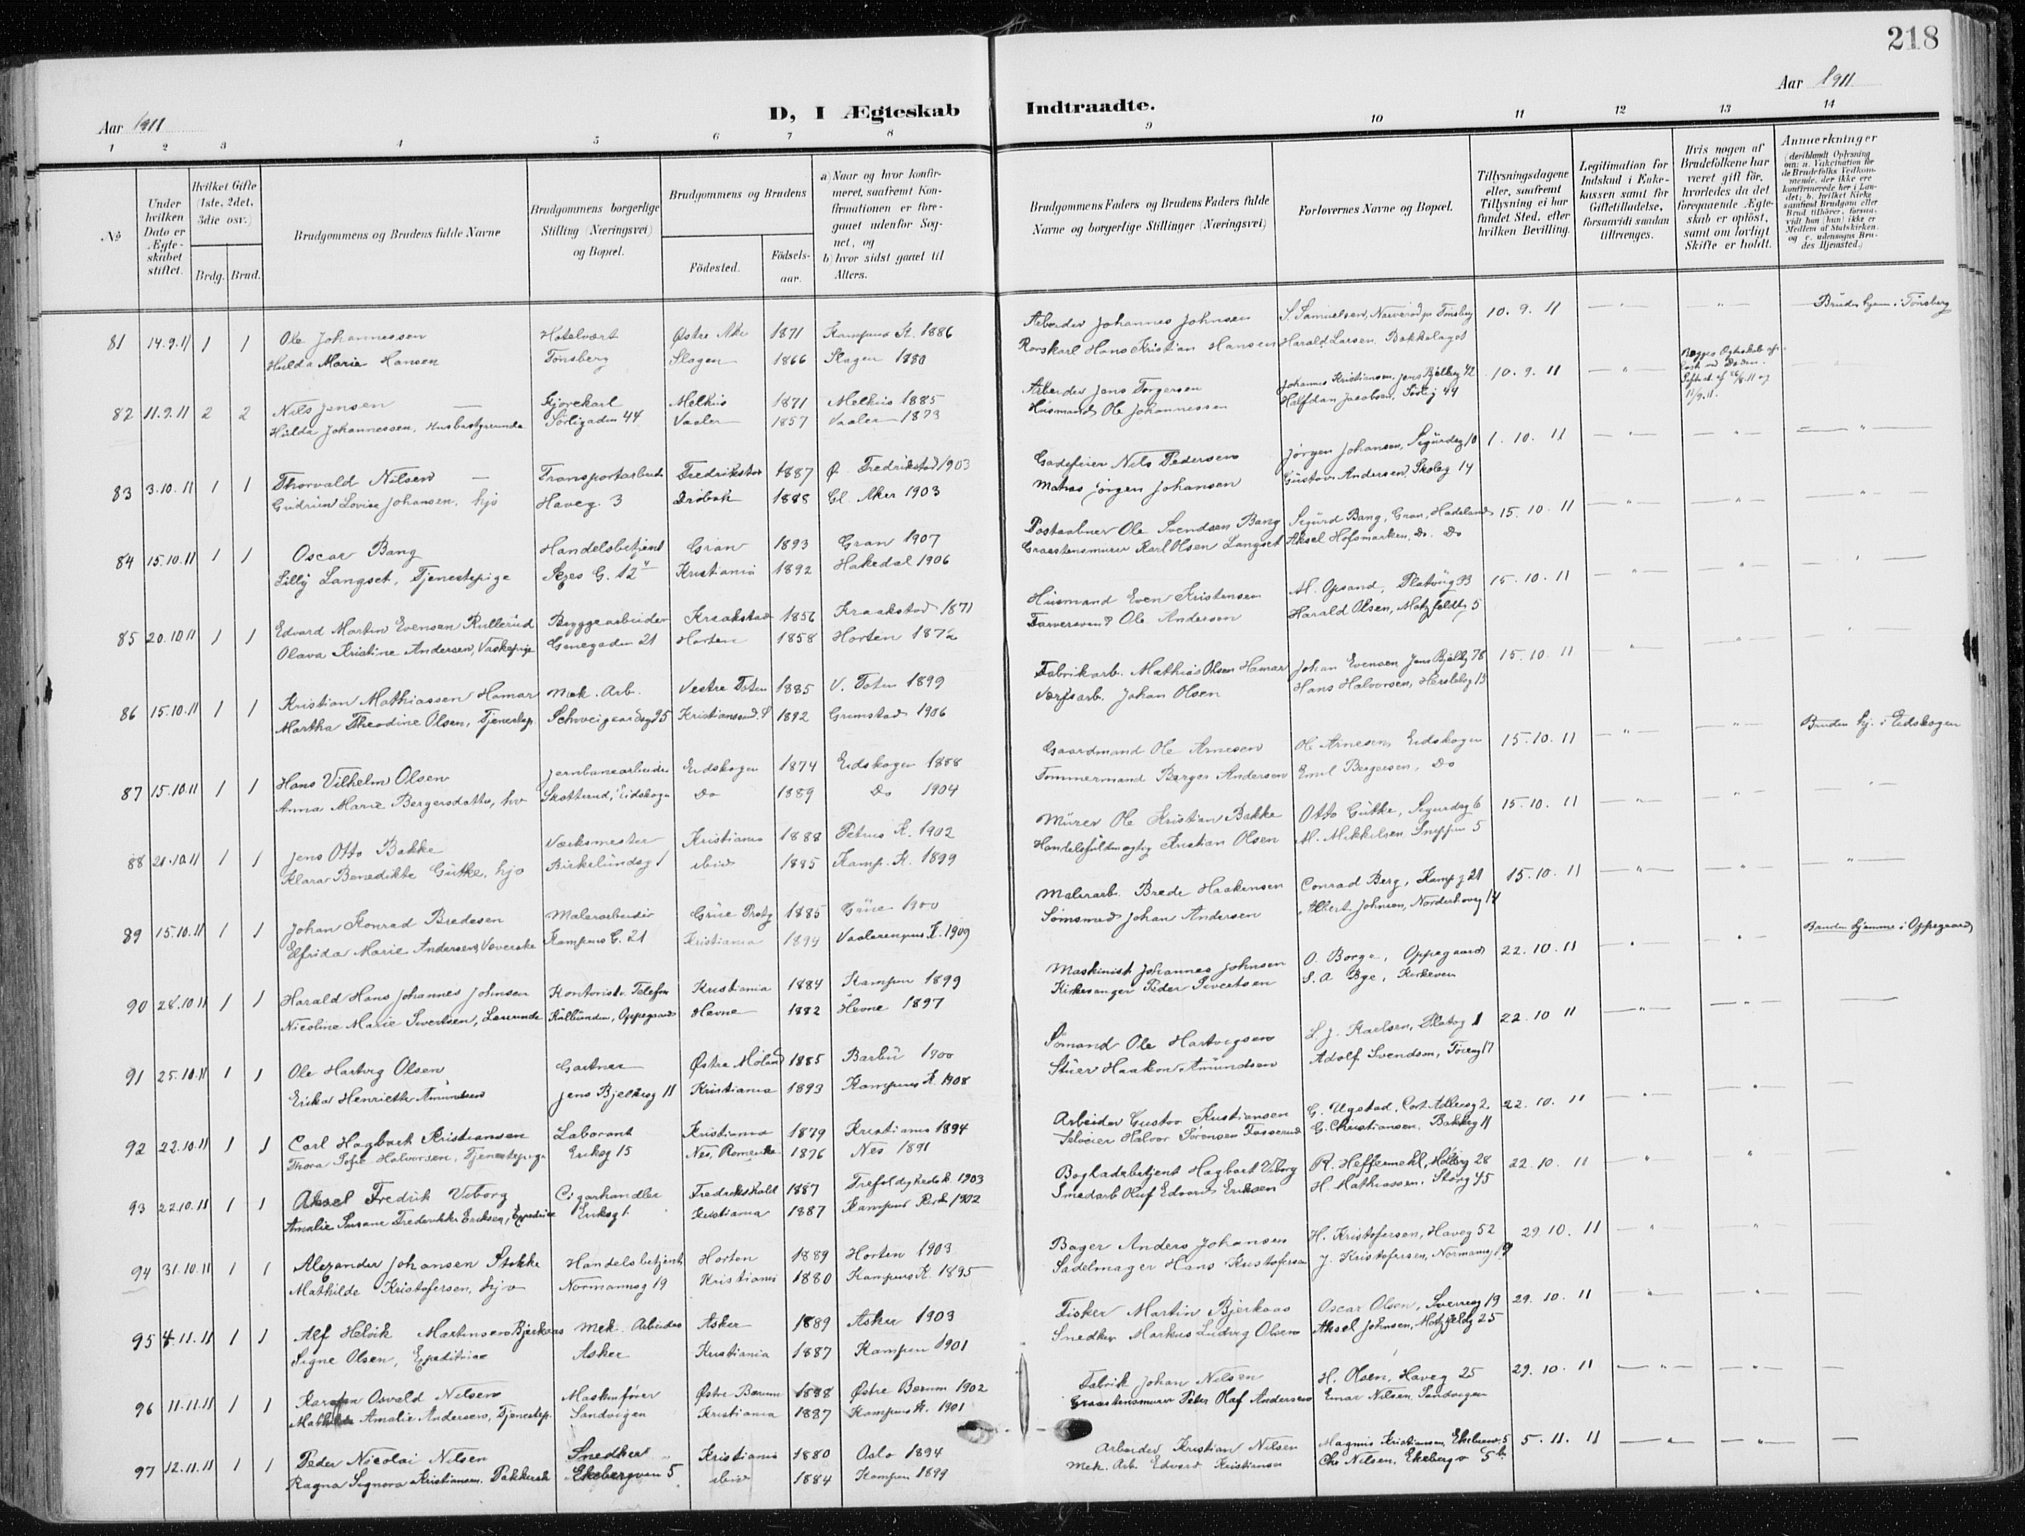 218
Aar 1911
D, I Ægteskab Indtraadte.
Aar 1911
1 2 3 4 5 6 7 8 9 10 11 12 13 14
No
Under hvilken Dato er Ægteskabet stiftet.
Hvilket Gifte (1ste, 2det, 3die osv.)
Brdg. Brud.
Brudgommens og Brudens fulde Navne
Brudgommens borgerlige Stilling (Næringsvei) og Bopæl.
Brudgommens og Brudens
Födested. Födselsaar.
a) Naar og hvor konfirmeret, saafremt Konfirmationen er foregaaet udenfor Sognet, og
b) hvor sidst gaaet til Alters.
Brudgommens Faders og Brudens Faders fulde Navne og borgerlige Stillinger (Næringsvei)
Forlovernes Navne og Bopæl.
Tillysningsdagene eller, saafremt Tillysning ei har fundet Sted, efter hvilken Bevilling.
Legitimation for Indskud i Enkekassen samt for Giftetilladelse, forsaavidt saadan tiltrænges.
Hvis nogen af Brudefolkene har været gift för, hvorledes da det foregaaende Ægteskab er oplöst, samt om lovligt Skifte er holdt.
Anmerkninger (deriblandt Oplysning om: a. Vakcination for de Brudefolks Vedkommende, der ikke ere konfirmerede her i Landet; b. hvilket Kirkesamfund Brudgom eller Brud tilhører, forsaavidt han (hun) ikke er Medlem af Statskirken, og c. udensogns Brudes Hjemsted.)
81 14.9.11 1 1 Ole Johannessen Hotelvært Østre Aker 1871 Kampens K. 1886 Arbeider Johannes Johnsen S. Samuelsen, Tønsberg 10.9.11 Brudes hjem i Tønsberg
Hulda Marie Hansen Tønsberg Slagen 1866 Slagen 1880 Rorskarl Hans Kristian Hansen Harald Larsen, Bakkelaget
82 11.9.11 2 2 Nils Jensen Kjørekarl Melhus 1871 Melhus 1885 Arbeider Jens Torgersen Johannes Kristiansen, Jens Bjelkeg 42 10.9.11 Begges Ægteskab opløst ved Døden.
Hulda Johannessen, Husbestyrerinde Sörligaden 44 Vaaler 1857 Vaaler 1873 Husmand Ole Johannessen Halfdan Jacobsen, Sörlig 44
83 3.10.11 1 1 Thorvald Nilsen Transportarbeid Fredrikstad 1887 Ø. Fredrikstad 1903 Gadefeier Nils Pedersen Jørgen Johansen, Sigurdsg 10 1.10.11
Gudrun Lovise Johansen, hjo Haveg. 3 Drøbak 1888 Gl. Aker 1903 Matros Jørgen Johansen Gustav Andersen, Skoleg 14
84 15.10.11 1 1 Oscar Bang Handelsbetjent Gran 1893 Gran 1907 Postaabner Ole Svendsen Bang Sigurd Bang, Gran, Hadeland 15.10.11
Lilly Langset, Tjenestepige G. 12 Kristiania 1892 Hakedal 1906 Graastensmurer Karl Olsen Langset Aksel Hofsmarken, Do. Do
85 20.10.11 1 1 Edvard Martin Evensen Rullerud Byggearbeider Kraakstad 1856 Kraakstad 1871 Husmand Even Kristensen M. Opsand, Platoug 33 15.10.11
Olava Kristine Andersen, Vaskepige 21 Horten 1858 Horten 1872 Farversvend Ole Andersen Harald Olsen, Motzfeldtg 5
86 15.10.11 1 1 Kristian Mathiassen Hamar Mek. Arb. Vestre Toten 1885 V. Toten 1899 Fabrikarb. Mathias Olsen Hamar Johan Evensen, Jens Bjelkg 78 15.10.11
Martha Theodine Olsen, Tjenestep. Schweigaardsgd 95 Kristianssand S 1892 Grimstad 1906 Værfsarb. Johan Olsen Hans Halvorsen, Herslebg 13
87 15.10.11 1 1 Hans Vilhelm Olsen Jernbanearbeider Eidskogen 1874 Eidskogen 1888 Gaardmand Ole Arnesen Ole Arnesen, Eidskogen 15.10.11 Bruden hj. i Eidskogen
Anna Marie Bergersdatter, hv Skotterud, Eidskogn Do 1889 Do 1904 Tømmermand Berger Andersen Emil Bergersen, Do
88 21.10.11 1 1 Jens Otto Bakke Værksmester Kristiania 1888 Petrus K. 1902 Murer Ole Kristian Bakke Otto Gütke, Sigurdsg 6 15.10.11
Klara Benedikte Gütke, hjo Birkelundsg 1 ibid 1885 Kamp. K. 1899 Handelsfuldmægtig Kristian Olsen M. Mikkelsen, Snippen 5
89 15.10.11 1 1 Johan Konrad Bredesen Malerarbeider Grue Prstg 1885 Grue 1900 Malerarb. Brede Haakensen Conrad Berg, Kampg 21 15.10.11
Elfrida Marie Andersen, Væverske Kampens G. 21 Kristiania 1894 Vaalerengens K. 1909 Sømsmed Johan Andersen Albert Johnsen, Norderhoveg 14
90 28.10.11 1 1 Harald Hans Johannes Johnsen Kontorist v. Telefon Kristiania 1884 Kampen 1899 Maskinist Johannes Johnsen O. Borge, Oppegaard 22.10.11 Bruden hjemme i Oppegaard
Nicoline Marie Sivertsen, Lærerinde Kolbunden, Oppegaard Hevne 1882 Hevne 1897 Kirkesanger Peder Sivertsen S. A. Bye, Kirkeveien
91 25.10.11 1 1 Ole Hartvig Olsen Gartner Østre Moland 1885 Barbu 1900 Sømand Ole Hartvigsen L. J. Karlsen, Platoug 1 22.10.11
Erika Henriette Amundsen Jens Bjelkesg 11 Kristiania 1893 Kampens K. 1908 Stuer Haakon Amundsen Adolf Svendsen, Tøieng 17
92 22.10.11 1 1 Carl Hagbart Kristiansen Laborant Kristiania 1879 Kristiania 1894 Arbeider Gustav Kristiansen G. Ugstad, Cort Adlersg 2 22.10.11
Thora Sofie Halvorsen, Tjenestepige Eriksg 15 Nes, Romerike 1876 Nes 1891 Selveier Halvor Sørensen Fosserud G. Christiansen, Bakkeg 11
93 22.10.11 1 1 Aksel Fredrik Viborg Cigarhandler Fredrikshald 1887 Trefoldighedsk 1903 Bogladebetjent Hagbart Viborg R. Heffermehl, Möllerg 28 22.10.11
Amalie Susane Frederikke Eriksen, Expeditrice Eriksg 1. Kristiania 1887 Kampens Kirke 1902 Smedarb Oluf Edvard Eriksen H. Mathiassen, Storg 45
94 31.10.11 1 1 Alexander Johansen Stokke Handelsbetjent Horten 1889 Horten 1903 Bager Anders Johansen H. Kristofersen, Haveg 52 29.10.11
Mathilde Kristofersen, hjo Normannsg 19 Kristiania 1880 Kampens K. 1895 Sadelmager Hans Kristofersen J. Kristofersen, Normannsg 19
95 4.11.11 1 1 Alf Helvik Martinsen Bjerkaas Mek. Arbeider Asker 1889 Asker 1903 Fisker Martin Bjerkaas Oscar Olsen, Sverresg 19 29.10.11
Signe Olsen, Expeditrice Asker Kristiania 1887 Kampen 1901 Snedker Markus Ludvig Olsen Aksel Johnsen, Motzfeldtg 25
96 11.11.11 1 1 Osvald Nilsen Maskinfører Østre Bærum 1888 Østre Bærum 1902 Fabrik Johan Nilsen H. Olsen, Haveg 25 29.10.11
Mathilde Amalie Andersen, Tjenestep. Sandvigen Kristiania 1887 Kampens K. 1901 Graastensmurer Peter Olaf Andersen Einar Nilsen, Sandvigen
97 12.11.11 1 1 Peder Nicolai Nilsen Snedker Kristiania 1880 Oslo 1894 Arbeider Kristian Nilsen Magnus Kristiansen, Ekebergv. 5 5.11.11
Ragna Signora Kristiansen, Pakkerske Ekebergveien 5 ibid 1884 Kampen 1899 Mek. Arb. Edvard Kristiansen Chr Nilsen, Ekebergv 5b